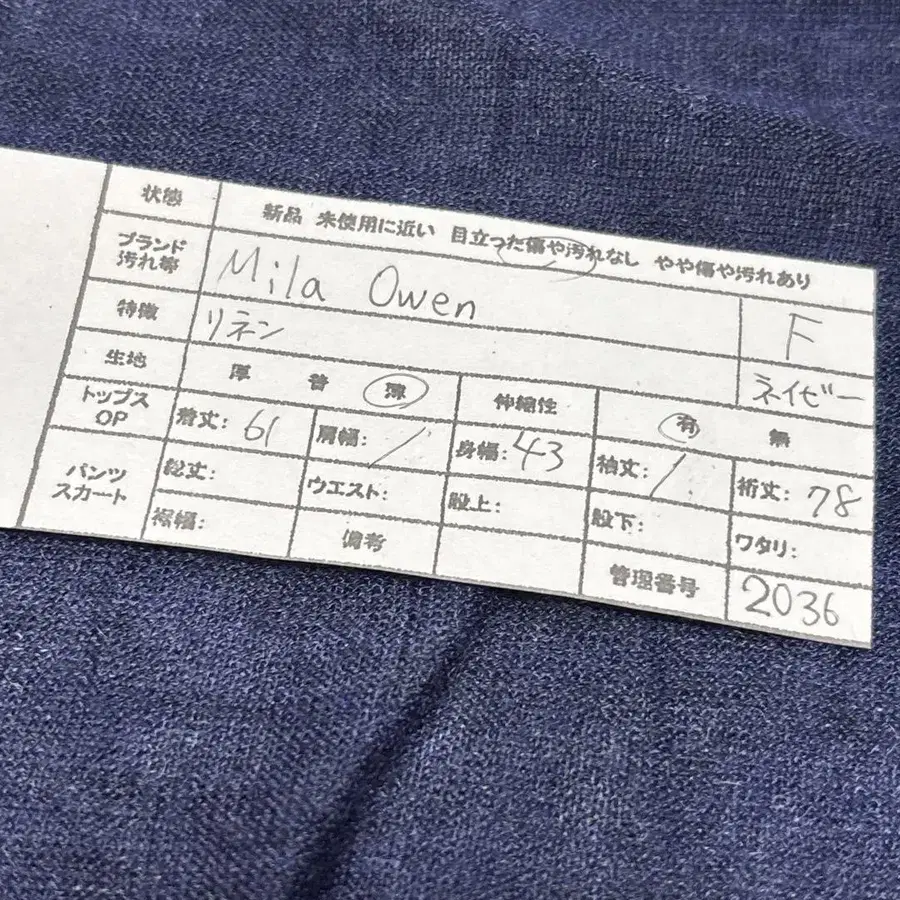 状態 新品 未使用に近い 目立った傷や汚れなし やや傷や汚れあり
ブランド 汚れ等 Mila Owen F
特徴 リネン ネイビー
生地 厚 普 薄 伸縮性 有 無
トップス OP 着丈: 61 肩幅: / 身幅: 43 袖丈: / 裄丈: 78
パンツ スカート 総丈: ウエスト: 股上: 股下: ワタリ:
裾幅: 備考 管理番号 2036